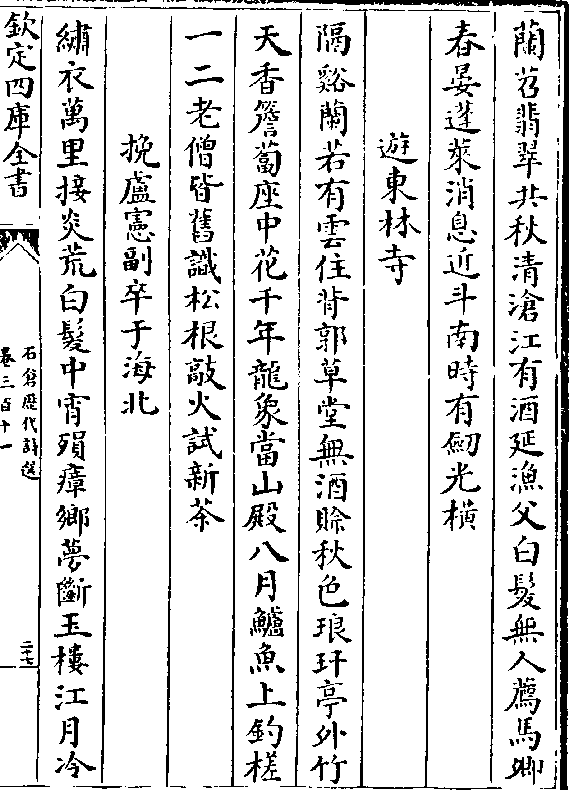 蘭苕翡翠共秋清滄江有酒延漁父白髮無人薦馬卿
春晏蓬萊消息近斗南時有劒光橫
遊東林寺
隔谿蘭若有雲住背郭草堂無酒賒秋色琅玕亭外竹
天香簷蔔座中花千年龍象當山殿八月鱸魚上釣槎
一二老僧皆舊識松根敲火試新茶
挽盧憲副卒于海北
繡衣萬里接炎荒白髮中宵殞瘴鄉夢斷玉樓江月冷
欽定四庫全書
石倉歷代詩選
卷三百十一
二十七